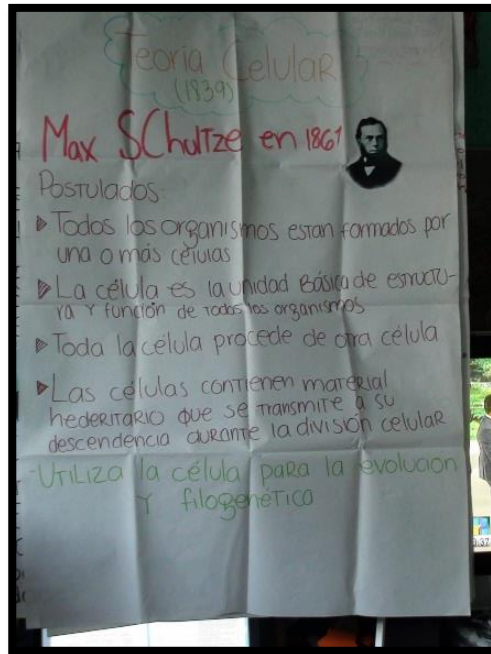 Teoría Celular
(1839)
Max SChulTze en 1861
POSTULADOS:
Todos los organismos estan formados por
una o más células
La célula es la unidad Básica de estructu-
ra Y función de Todos los organismos
Toda la célula procede de otra célula
Las células contienen material
hederitario que se transmite a su
descendencia durante la división celular
-Utiliza la célula para la evolución
Y filogenética